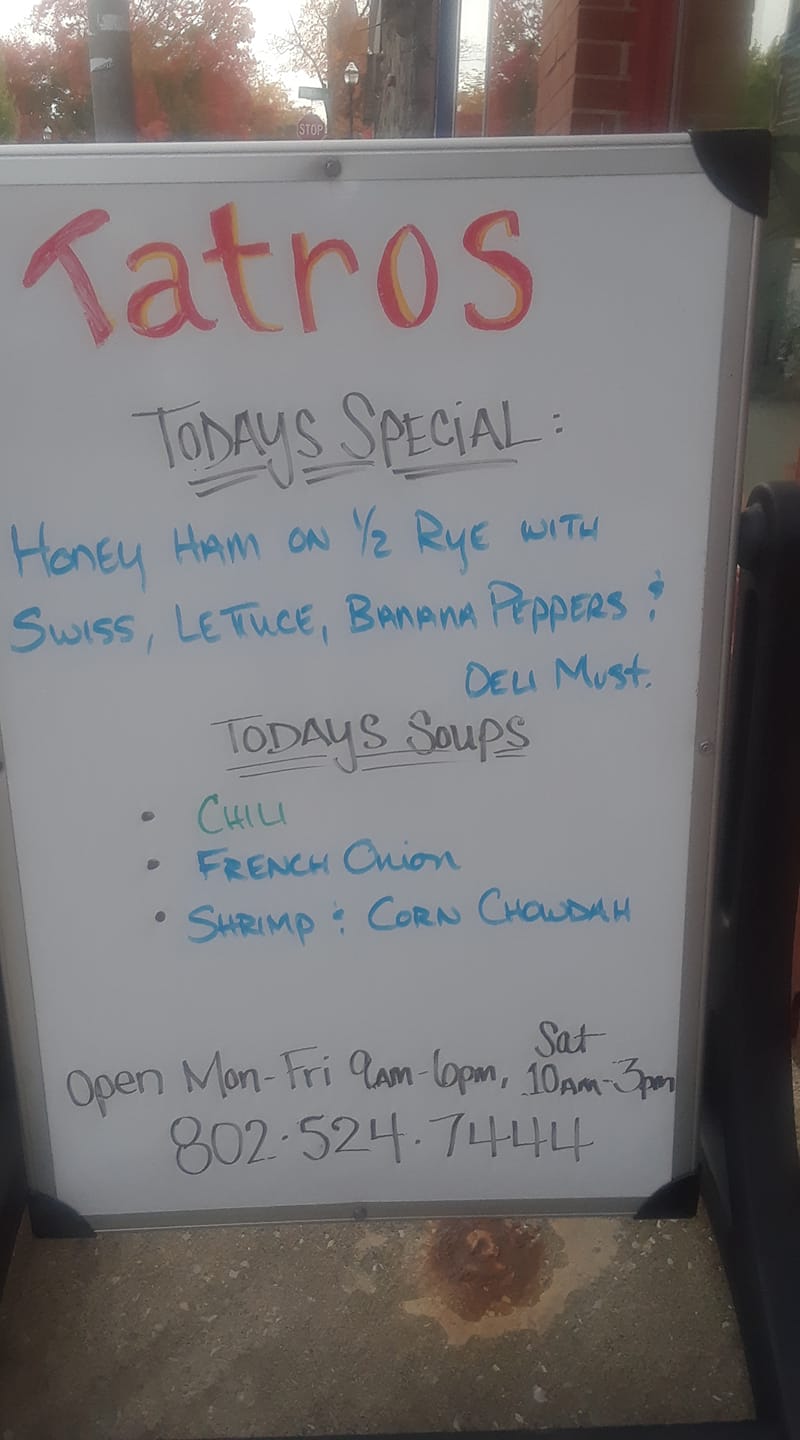 STOP
Tatros
TODAYS SPECIAL:
HONEY HAM ON 1/2 RYE WITH
SWISS, LETTUCE, BANANA PEPPERS &
DELI MUST.
TODAYS SOUPS
• CHILI
• FRENCH ONION
• SHRIMP & CORN CHOWDAH
Open Mon-Fri 9AM-6pm, Sat 10AM-3pm
802.524.7444